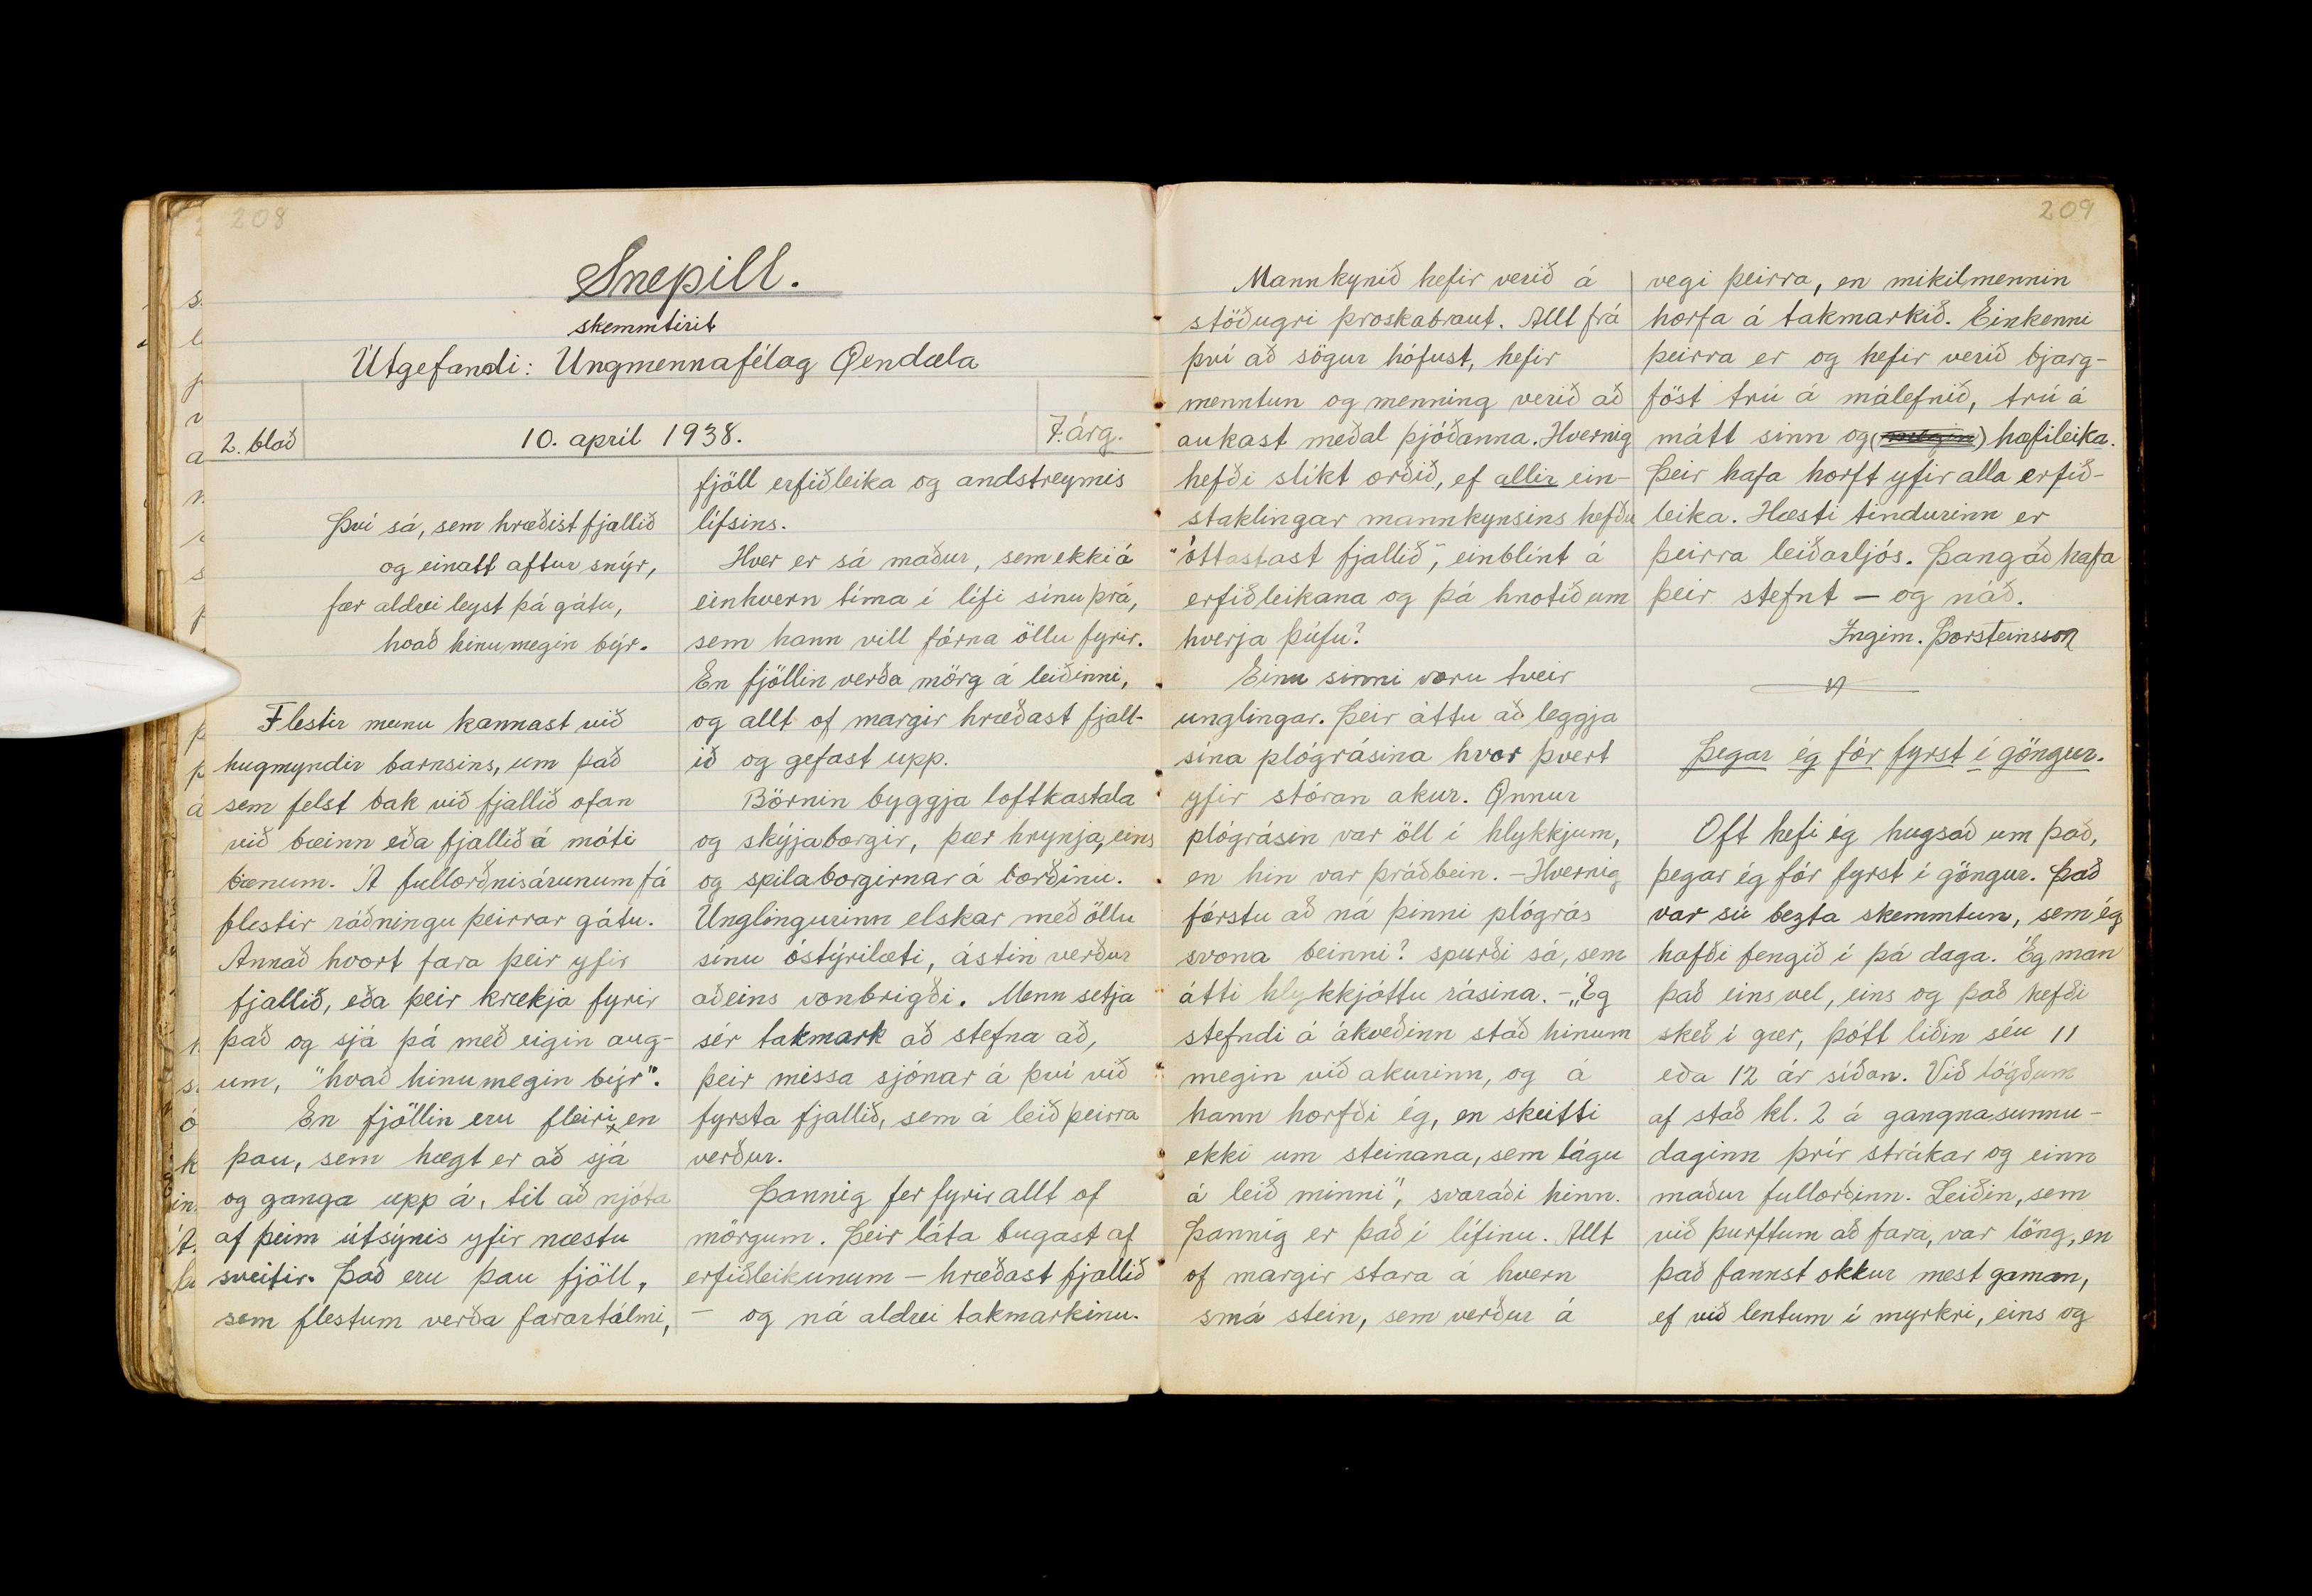 208
Snepill.
skemmtirit
Útgefandi: Ungmennafélag Öxndæla
2. blað
10. apríl 1938.
7. árg.
Því sá, sem hræðist fjallið
og einatt aftur snýr,
fær aldrei leyst þá gátu,
hvað hinumegin býr.
Flestir munu kannast við
hugmyndir barnsins, um það
sem felst bak við fjallið ofan
við bæinn eða fjallið á móti
bænum. Á fullorðnisárunum fá
flestir ráðningu þeirrar gátu.
Annað hvort fara þeir yfir
fjallið, eða þeir krækja fyrir
það og sjá þá með eigin aug-
um, "hvað hinumegin býr".
En fjöllin eru fleiri, en
þau, sem hægt er að sjá
og ganga upp á, til að njóta
af þeim útsýnis yfir næstu
sveitir. Það eru þau fjöll,
sem flestum verða farartálmi,
fjöll erfiðleika og andstreymis
lífsins.
Hver er sá maður, sem ekki á
einhvern tíma í lífi sínu þrá,
sem hann vill fórna öllu fyrir.
En fjöllin verða mörg á leiðinni,
og allt of margir hræðast fjall-
ið og gefast upp.
Börnin byggja loftkastala
og skýjaborgir, þær hrynja, eins
og spilaborgirnar á borðinu.
Unglingurinn elskar með öllu
sínu óstýrilæti, ástin verður
aðeins vonbrigði. Menn setja
sér takmark að stefna að,
þeir missa sjónar á því við
fyrsta fjallið, sem á leið þeirra
verður.
Þannig fer fyrir allt of
mörgum. Þeir láta bugast af
erfiðleikunum – hræðast fjallið
– og ná aldrei takmarkinu.
209
Mannkynið hefir verið á
stöðugri þroskabraut. Allt frá
því að sögur hófust, hefir
menntun og menning verið að
aukast meðal þjóðanna. Hvernig
hefði slíkt orðið, ef allir ein-
staklingar mannkynsins hefðu
"óttastast fjallið", einblínt á
erfiðleikana og þá hnotið um
hverja þúfu?
Einu sinni voru tveir
unglingar. Þeir áttu að leggja
sína plógrásina hvor þvert
yfir stóran akur. Önnur
plógrásin var öll í hlykkjum,
en hin var þráðbein. – Hvernig
fórstu að ná þinni plógrás
svona beinni? spurði sá, sem
átti hlykkjóttu rásina. – "Ég
stefndi á ákveðinn stað hinum
megin við akurinn, og á
hann horfði ég, en skeitti
ekki um steinana, sem lágu
á leið minni", svaraði hinn.
Þannig er það í lífinu. Allt
of margir stara á hvern
smá stein, sem verður á
vegi þeirra, en mikilmennin
horfa á takmarkið. Einkenni
þeirra er og hefir verið bjarg-
föst trú á málefnið, trú á
mátt sinn og (megin) hæfileika.
Þeir hafa horft yfir alla erfið-
leika. Hæsti tindurinn er
þeirra leiðarljós. Þangað hafa
þeir stefnt – og náð.
Ingim. Þorsteinsson
Þegar ég fór fyrst í göngur.
Oft hefi ég hugsað um það,
þegar ég fór fyrst í göngur. Það
var sú bezta skemmtun, sem ég
hafði fengið í þá daga. Ég man
það eins vel, eins og það hefði
skeð í gær, þótt liðin séu 11
eða 12 ár síðan. Við lögðum
af stað kl. 2 á gangnasunnu-
daginn þrír strákar og einn
maður fullorðinn. Leiðin, sem
við þurftum að fara, var löng, en
það fannst okkur mest gaman,
ef við lentum í myrkri, eins og